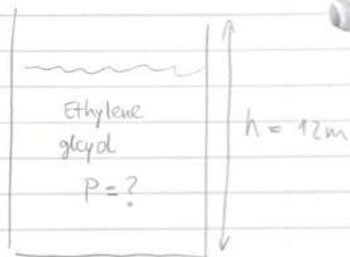 Ethylene
glcyol
P = ?
h = 12m